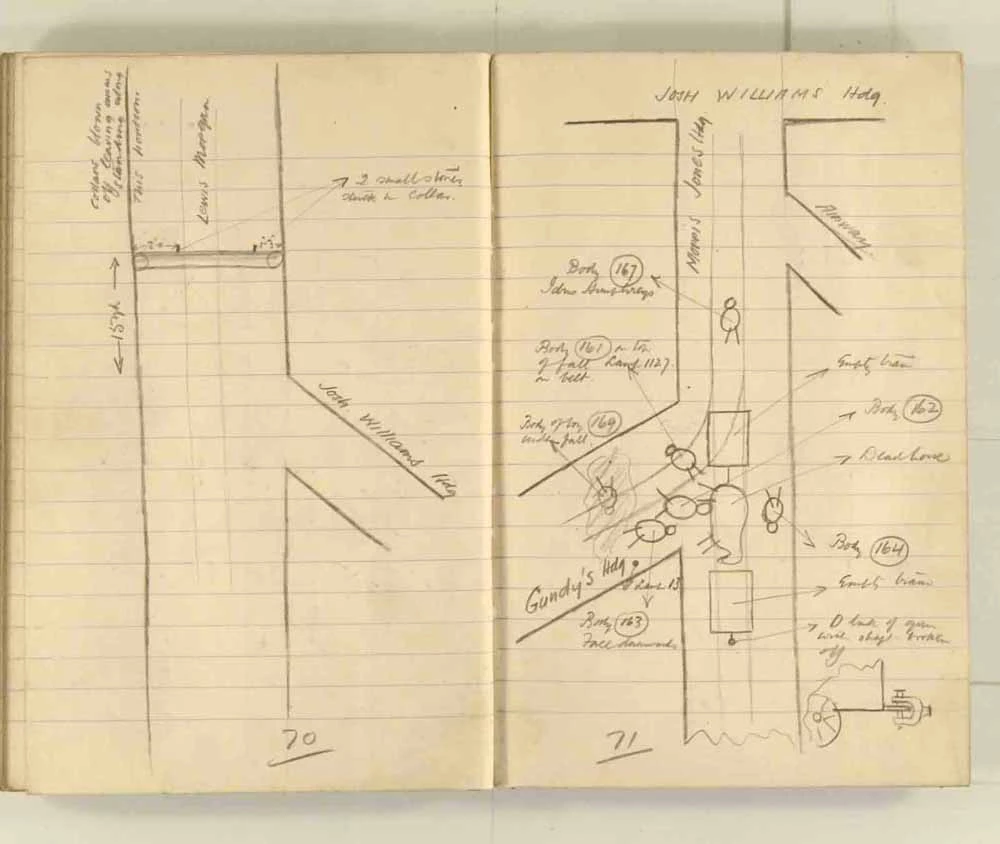 Collars blown
off leaving arms
standing along
this portion.
Lewis Morgan
2 small stones
stuck in Collar.
15 yds
Josh Williams Hdg
70
JOSH WILLIAMS Hdg.
Morris Jones Hdg
Airway
Body 167
Idris Humphreys
Body 161 on top
of fall Lamp 1127
on belt.
Empty tram
Body 162
Body of boy 169
under fall.
Dead horse
Body 164
Gundy's Hdg
Lamp 13
Empty tram
Body 163
Face downwards
D link of gun
with shap broken
off
71